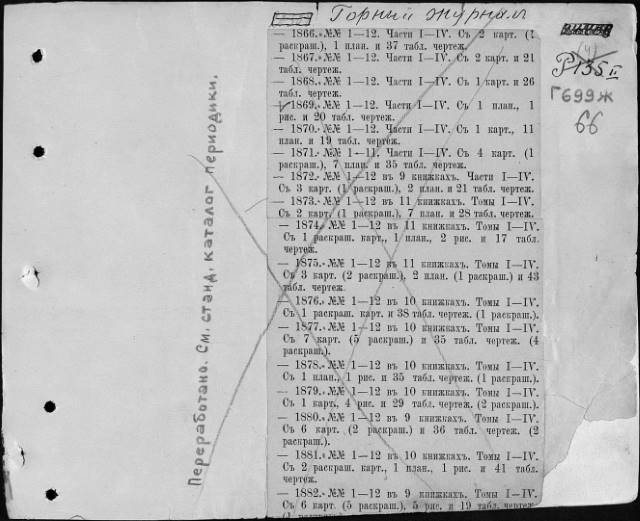 Горный журнал
(4)
Р135 II
Г699ж
66
Переработано. См. станд. каталог периодики.
— 1866. №№ 1—12. Части I—IV. Съ 2 карт. (1
раскраш.), 1 план. и 37 табл. чертеж.
— 1867. №№ 1—12. Части I—IV. Съ 2 карт. и 21
табл. чертеж.
— 1868. №№ 1—12. Части I—IV. Съ 1 карт. и 26
табл. чертеж.
— 1869. №№ 1—12. Части I—IV. Съ 1 план., 1
рис. и 20 табл. чертеж.
— 1870. №№ 1—12. Части I—IV. Съ 1 карт., 11
план. и 19 табл. чертеж.
— 1871. №№ 1—11. Части I—IV. Съ 4 карт. (1
раскраш.), 7 план. и 35 табл. чертеж.
— 1872. №№ 1—12 въ 9 книжкахъ. Части I—IV.
Съ 3 карт. (1 раскраш.), 2 план. и 21 табл. чертеж.
— 1873. №№ 1—12 въ 11 книжкахъ. Томы I—IV.
Съ 2 карт. (1 раскраш.), 7 план. и 28 табл. чертеж.
— 1874. №№ 1—12 въ 11 книжкахъ. Томы I—IV.
Съ 1 раскраш. карт., 1 план., 2 рис. и 17 табл.
чертеж.
— 1875. №№ 1—12 въ 11 книжкахъ. Томы I—IV.
Съ 3 карт. (2 раскраш.), 2 план. (1 раскраш.) и 43
табл. чертеж.
— 1876. №№ 1—12 въ 10 книжкахъ. Томы I—IV.
Съ 1 раскраш. карт. и 38 табл. чертеж. (1 раскраш.).
— 1877. №№ 1—12 въ 10 книжкахъ. Томы I—IV.
Съ 7 карт. (5 раскраш.) и 35 табл. чертеж. (4
раскраш.).
— 1878. №№ 1—12 въ 10 книжкахъ. Томы I—IV.
Съ 1 план., 1 рис. и 35 табл. чертеж. (1 раскраш.).
— 1879. №№ 1—12 въ 10 книжкахъ. Томы I—IV.
Съ 1 карт., 4 рис. и 29 табл. чертеж. (2 раскраш.).
— 1880. №№ 1—12 въ 9 книжкахъ. Томы I—IV.
Съ 6 карт. (2 раскраш.) и 36 табл. чертеж. (2
раскраш.).
— 1881. №№ 1—12 въ 10 книжкахъ. Томы I—IV.
Съ 2 раскраш. карт., 1 план., 1 рис. и 41 табл.
чертеж.
— 1882. №№ 1—12 въ 9 книжкахъ. Томы I—IV.
Съ 6 карт. (5 раскраш.), 5 рис. и 19 табл. чертеж.